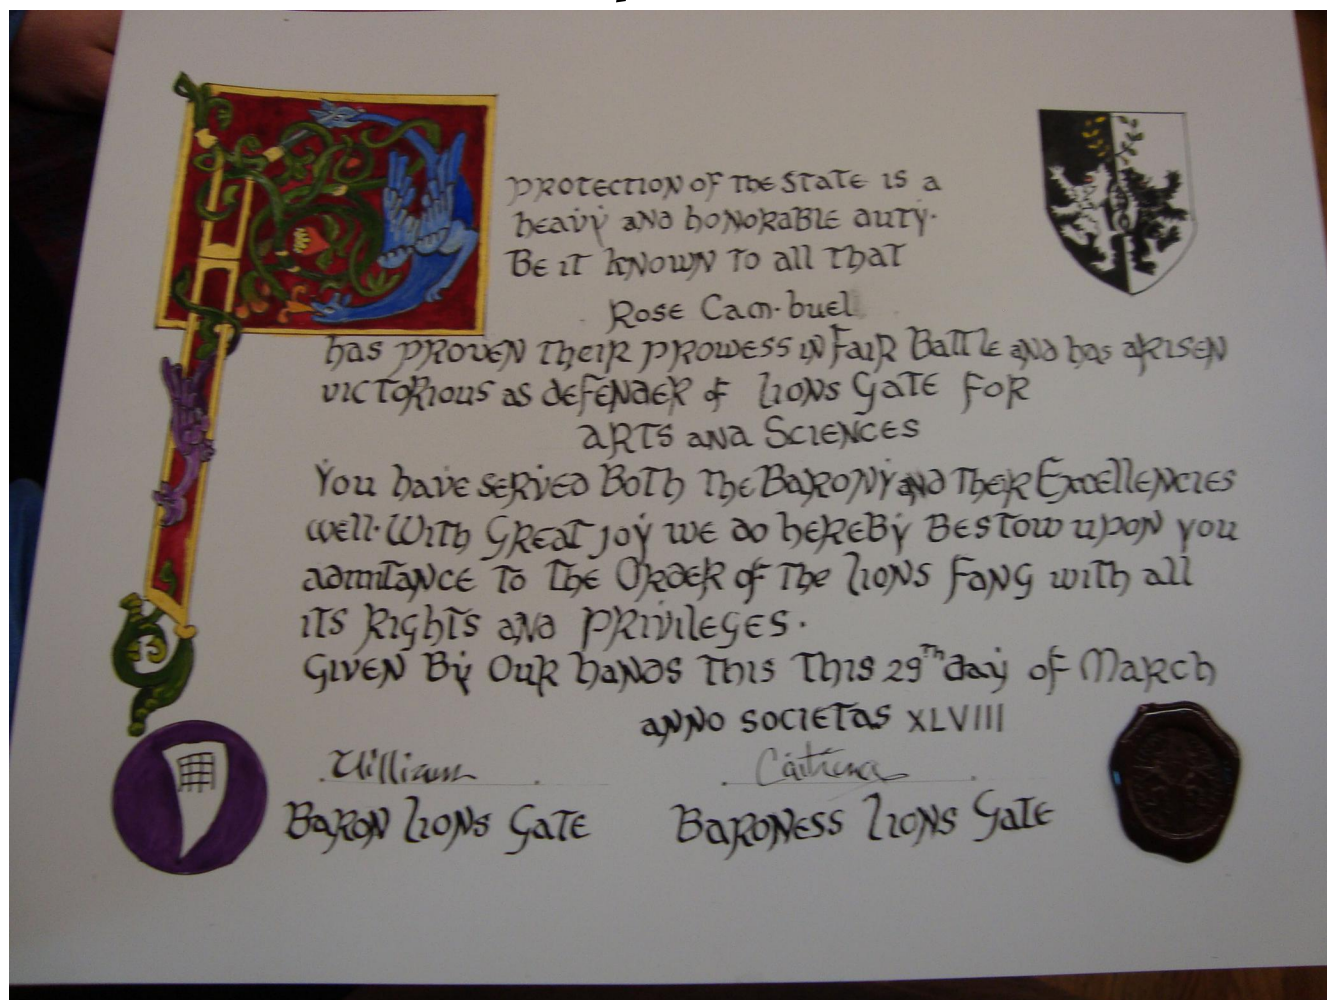 PROTECTION OF THE STATE IS A
HEAVY AND HONORABLE DUTY.
BE IT KNOWN TO ALL THAT
Rose Cam·buel
has PROVEN THEIR PROWESS IN FAIR BATTLE AND has ARISEN
VICTORIOUS AS DEFENDER of LIONS GATE FOR
ARTS AND SCIENCES
You have SERVED BOTH THE BARONY AND THEIR EXCELLENCIES
well. With GREAT JOY WE do HEREBY BESTOW upon you
admitance To The ORDER of The LIONS FANG with all
its RIGHTS AND PRIVILEGES.
GIVEN BY OUR HANDS THIS THIS 29Th day of March
ANNO SOCIETAS XLVIII
William Caitrina
BARON LIONS GATE BARONESS LIONS GATE